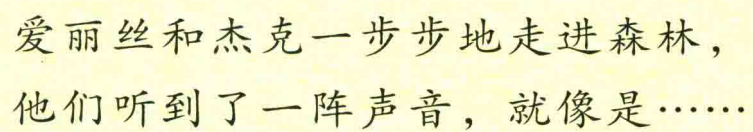 爱丽丝和杰克一步步地走进森林，
他们听到了一阵声音，就像是……